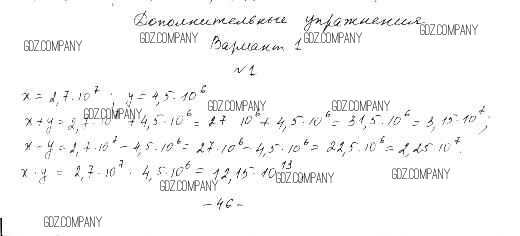 Дополнительные упражнения
GDZ.COMPANY GDZ.COMPANY GDZ.COMPANY
Вариант 1
№1
x = 2,7·10⁷; y = 4,5·10⁶
GDZ.COMPANY GDZ.COMPANY GDZ.COMPANY
x + y = 2,7·10⁷ + 4,5·10⁶ = 27·10⁶ + 4,5·10⁶ = 31,5·10⁶ = 3,15·10⁷;
x - y = 2,7·10⁷ - 4,5·10⁶ = 27·10⁶ - 4,5·10⁶ = 22,5·10⁶ = 2,25·10⁷.
x · y = 2,7·10⁷ · 4,5·10⁶ = 12,15·10¹³.
GDZ.COMPANY GDZ.COMPANY GDZ.COMPANY
- 46 -
GDZ.COMPANY